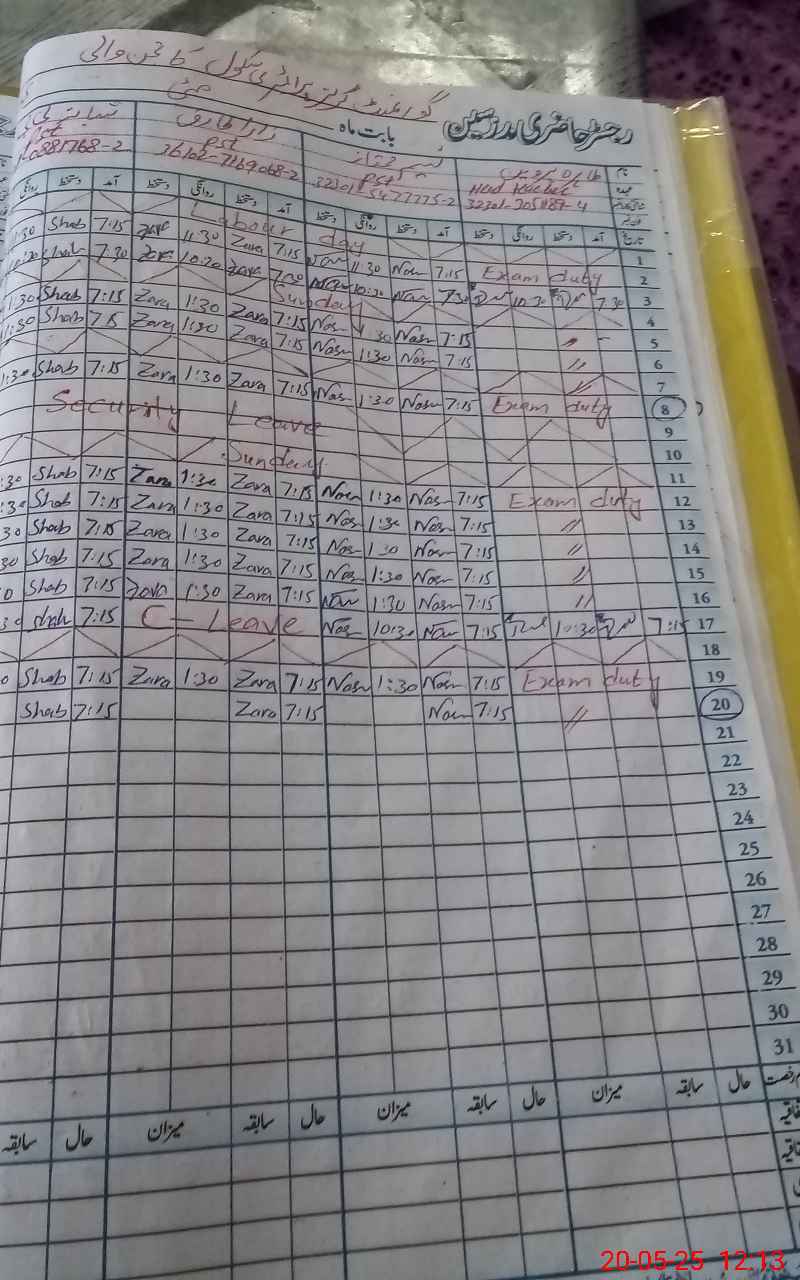 گورنمنٹ گرلز پرائمری سکول
رجسٹر حاضری مدرسین بابت ماہ مئی
نام
Head Teacher PST PST PST
32301-5477775-2 36102-7169068-2
تاریخ آمد دستخط روانگی دستخط آمد دستخط روانگی دستخط آمد دستخط روانگی دستخط آمد دستخط روانگی
1 Labour day
2 Exam duty 7:15 Nasr 11:30 Nasr 7:15 Zara 11:30 Zara 7:15 Shab 11:30
3 7:30 10:30 7:30 Nasr 10:30 Nasr 7:30 Zara 10:30 Zara 7:30 Shab
4 Sunday
5 〃 7:15 Nasr 1:30 Nasr 7:15 Zara 1:30 Zara 7:15 Shab 1:30
6 〃 7:15 Nasr 1:30 Nasr 7:15 Zara 1:30 Zara 7:15 Shab 1:30
7 〃
8 Exam duty 7:15 Nasr 1:30 Nasr 7:15 Zara 1:30 Zara 7:15 Shab 1:30
9 Security Leave
10
11 Sunday
12 Exam duty 7:15 Nasr 1:30 Nasr 7:15 Zara 1:30 Zara 7:15 Shab :30
13 〃 7:15 Nasr 1:30 Nasr 7:15 Zara 1:30 Zara 7:15 Shab :30
14 〃 7:15 Nasr 1:30 Nasr 7:15 Zara 1:30 Zara 7:15 Shab 30
15 〃 7:15 Nasr 1:30 Nasr 7:15 Zara 1:30 Zara 7:15 Shab 30
16 〃 7:15 Nasr 1:30 Nasr 7:15 Zara 1:30 Zara 7:15 Shab 0
17 7:15 10:30 7:15 Nasr 10:30 Nasr C-Leave 7:15 Shab 30
18
19 Exam duty 7:15 Nasr 1:30 Nasr 7:15 Zara 1:30 Zara 7:15 Shab 0
20 〃 7:15 Nasr 7:15 Zara 7:15 Shab
21
22
23
24
25
26
27
28
29
30
31
رخصت حال سابقہ میزان حال سابقہ میزان حال سابقہ میزان حال سابقہ
20-05-25 12.13